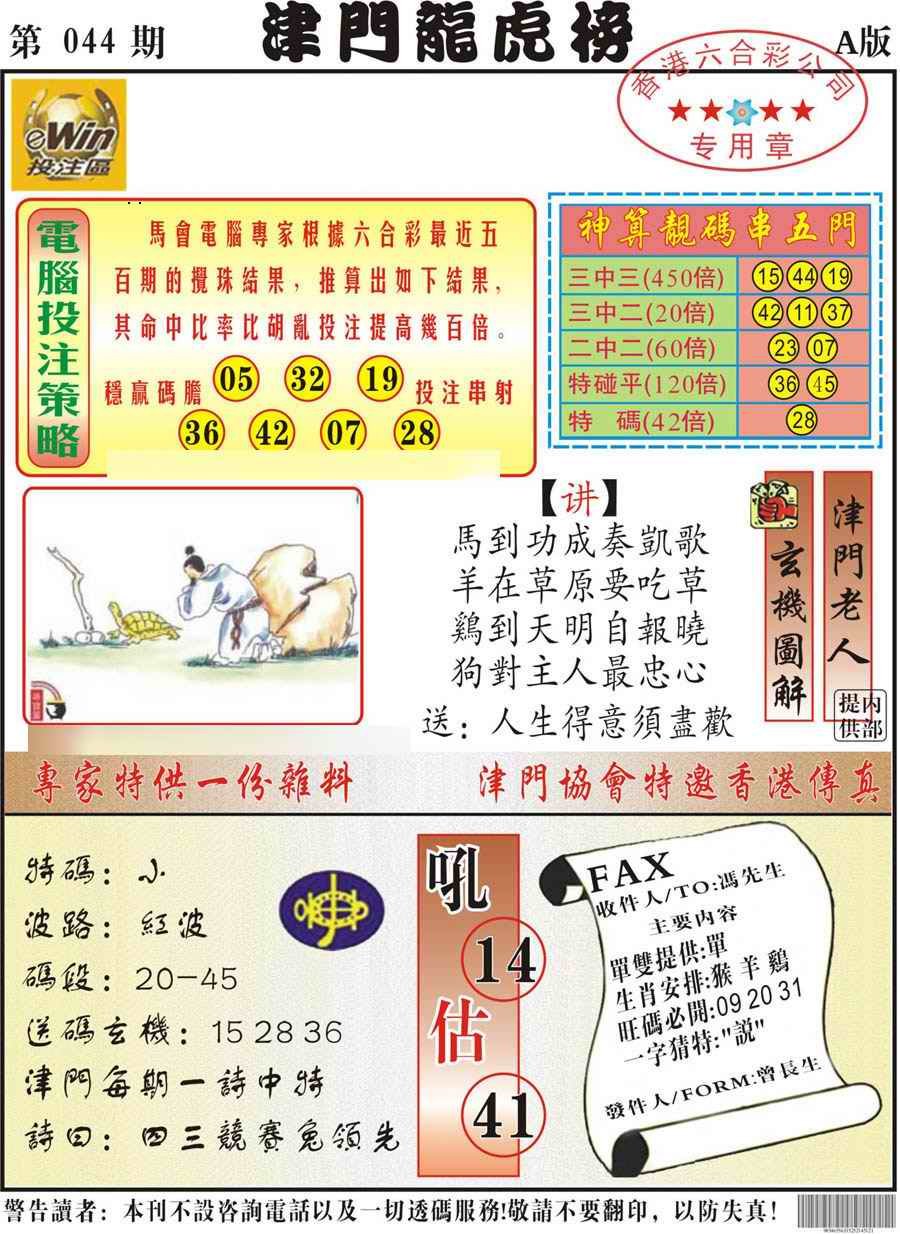 第 044 期
津門龍虎榜
A版
香港六合彩公司
专用章
eWin
投注區
電腦投注策略
馬會電腦專家根據六合彩最近五
百期的攪珠結果，推算出如下結果，
其命中比率比胡亂投注提高幾百倍。
穩贏碼膽 05 32 19 投注串射
36 42 07 28
神算靚碼串五門
三中三(450倍) 15 44 19
三中二(20倍) 42 11 37
二中二(60倍) 23 07
特碰平(120倍) 36 45
特 碼(42倍) 28
【讲】
馬到功成奏凱歌
羊在草原要吃草
鷄到天明自報曉
狗對主人最忠心
送：人生得意須盡歡
玄機圖解
津門老人
内部提供
專家特供一份雜料
津門協會特邀香港傳真
特碼：小
波路：紅波
碼段：20－45
送碼玄機：15 28 36
津門每期一詩中特
詩曰：四三競賽兔領先
吼
14
估
41
FAX
收件人/TO:馮先生
主要内容
單雙提供:單
生肖安排:猴 羊 鷄
旺碼必開:09 20 31
一字猜特:"説"
發件人/FORM:曾長生
警告讀者：本刊不設咨詢電話以及一切透碼服務!敬請不要翻印，以防失真！